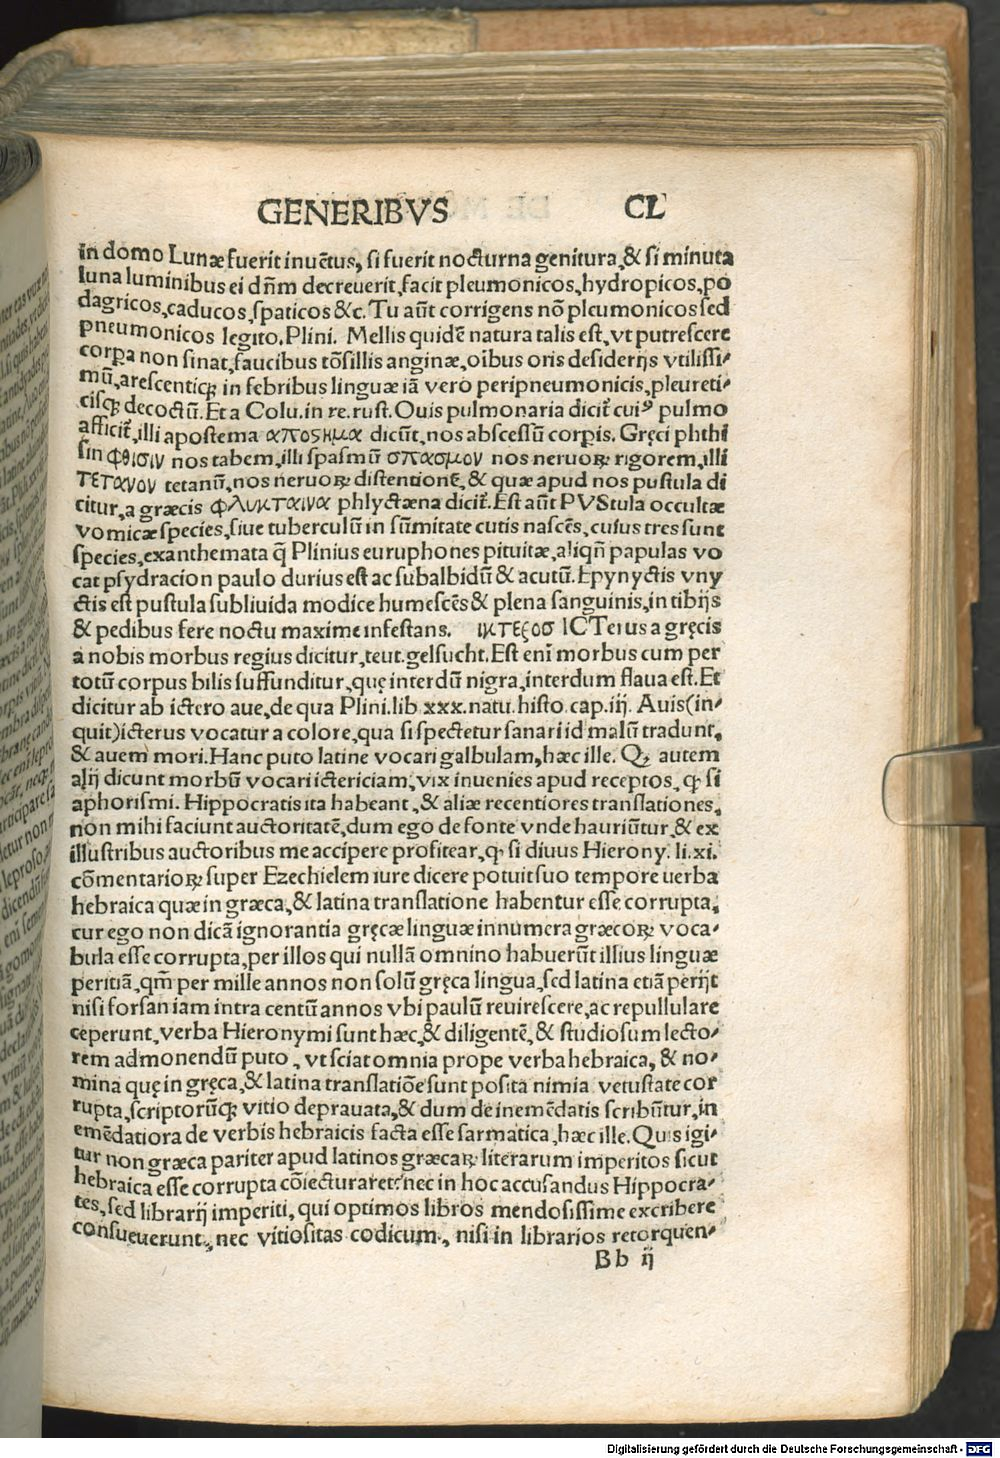 GENERIBVS CL
in domo Lunæ fuerit inuētus, si fuerit nocturna genitura, & si minuta
luna luminibus ei dn̄m decreuerit, facit pleumonicos, hydropicos, po
dagricos, caducos, spaticos &c. Tu aūt corrigens nō pleumonicos sed
pneumonicos legito. Plini. Mellis quidē natura talis est, vt putrescere
corpa non sinat, faucibus tōsillis anginæ, oībus oris desiderijs vtilissi⸗
mū, arescenticꝫ in febribus linguæ iā vero peripneumonicis, pleureti⸗
cisqꝫ decoctū. Et a Colu. in re. rust. Ouis pulmonaria dicit̄ cuiꝰ pulmo
afficit̄, illi apostema αποσημα dicūt, nos abscessū corpis. Gręci phthi
sin φθισιν nos tabem, illi spasmū σπασμον nos neruoꝝ rigorem, illi
τετανον tetanū, nos neruoꝝ distentionē, & quæ apud nos pustula di
citur, a græcis φλυκταινα phlyctæna dicit̄. Est aūt PVStula occultæ
vomicæ species, siue tuberculū in sūmitate cutis nascēs, cuius tres sunt
species, exanthemata q̄ Plinius euruphones pituitæ, aliqn̄ papulas vo
cat psydracion paulo durius est ac subalbidū & acutū. Epynyctis vny
ctis est pustula subliuida modice humescēs & plena sanguinis, in tibijs
& pedibus fere noctu maxime infestans. ικτεξοσ ICTeius a gręcis
a nobis morbus regius dicitur, teut. gelsucht. Est enī morbus cum per
totū corpus bilis suffunditur, quę interdū nigra, interdum flaua est. Et
dicitur ab ictero aue, de qua Plini. lib xxx. natu. histo. cap. iij. Auis (in⸗
quit) icterus vocatur a colore, qua si spectetur sanari id malū tradunt,
& auem mori. Hanc puto latine vocari galbulam, hæc ille. Qꝫ autem
alij dicunt morbū vocari ictericiam, vix inuenies apud receptos, ꝙ si
aphorismi. Hippocratis ita habeant, & aliæ recentiores translationes,
non mihi faciunt auctoritatē, dum ego de fonte vnde hauriūtur, & ex
illustribus auctoribus me accipere profitear, ꝙ si diuus Hierony. li. xi.
cōmentarioꝝ super Ezechielem iure dicere potuit suo tempore uerba
hebraica quæ in græca, & latina translatione habentur esse corrupta,
cur ego non dicā ignorantia gręcæ linguæ innumera græcoꝝ voca⸗
bula esse corrupta, per illos qui nullā omnino habuerūt illius linguæ
peritiā, qm̄ per mille annos non solū gręca lingua, sed latina etiā perijt
nisi forsan iam intra centū annos vbi paulū reuirescere, ac repullulare
ceperunt, verba Hieronymi sunt hæc, & diligentē, & studiosum lecto⸗
rem admonendū puto, vt sciat omnia prope verba hebraica, & no⸗
mina quę in gręca, & latina translatiōe sunt posita nimia vetustate cor
rupta, scriptorūqꝫ vitio deprauata, & dum de inemēdatis scribūtur, in
emēdatiora de verbis hebraicis facta esse sarmatica, hæc ille. Quis igi⸗
tur non græca pariter apud latinos græcaꝝ literarum imperitos sicut
hebraica esse corrupta cōiecturaret? nec in hoc accusandus Hippocra⸗
tes, sed librarij imperiti, qui optimos libros mendosissime excribere
consueuerunt, nec vitiositas codicum, nisi in librarios retorquen⸗
Bb ij
Digitalisierung gefördert durch die Deutsche Forschungsgemeinschaft - DFG